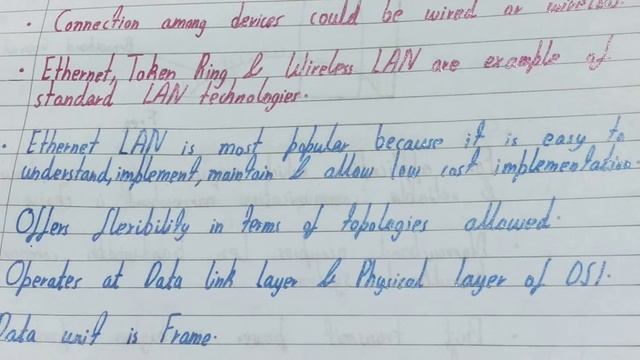 • Connection among devices could be wired or wireless.
• Ethernet, Token Ring & Wireless LAN are example of
standard LAN technologies.
• Ethernet LAN is most popular because it is easy to
understand, implement, maintain & allow low cost implementation.
Offers flexibility in terms of topologies allowed.
Operates at Data link Layer & Physical layer of OSI.
Data unit is Frame.